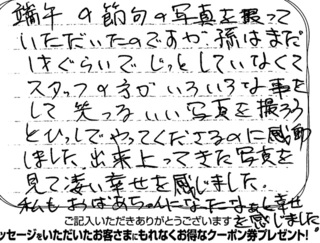 端午の節句の写真を撮って
いただいたのですが孫はまだ
1才ぐらいでじっとしていなくて
スタッフの方がいろいろな事を
して笑ういい写真を撮ろう
とひっしでやってくださるのに感動
しました。出来上ってきた写真を
見て凄い幸せを感じました。
私もおばあちゃんになったなあと幸せ
を感じました
ご記入いただきありがとうございます
ッセージをいただいたお客さまにもれなくお得なクーポン券プレゼント!